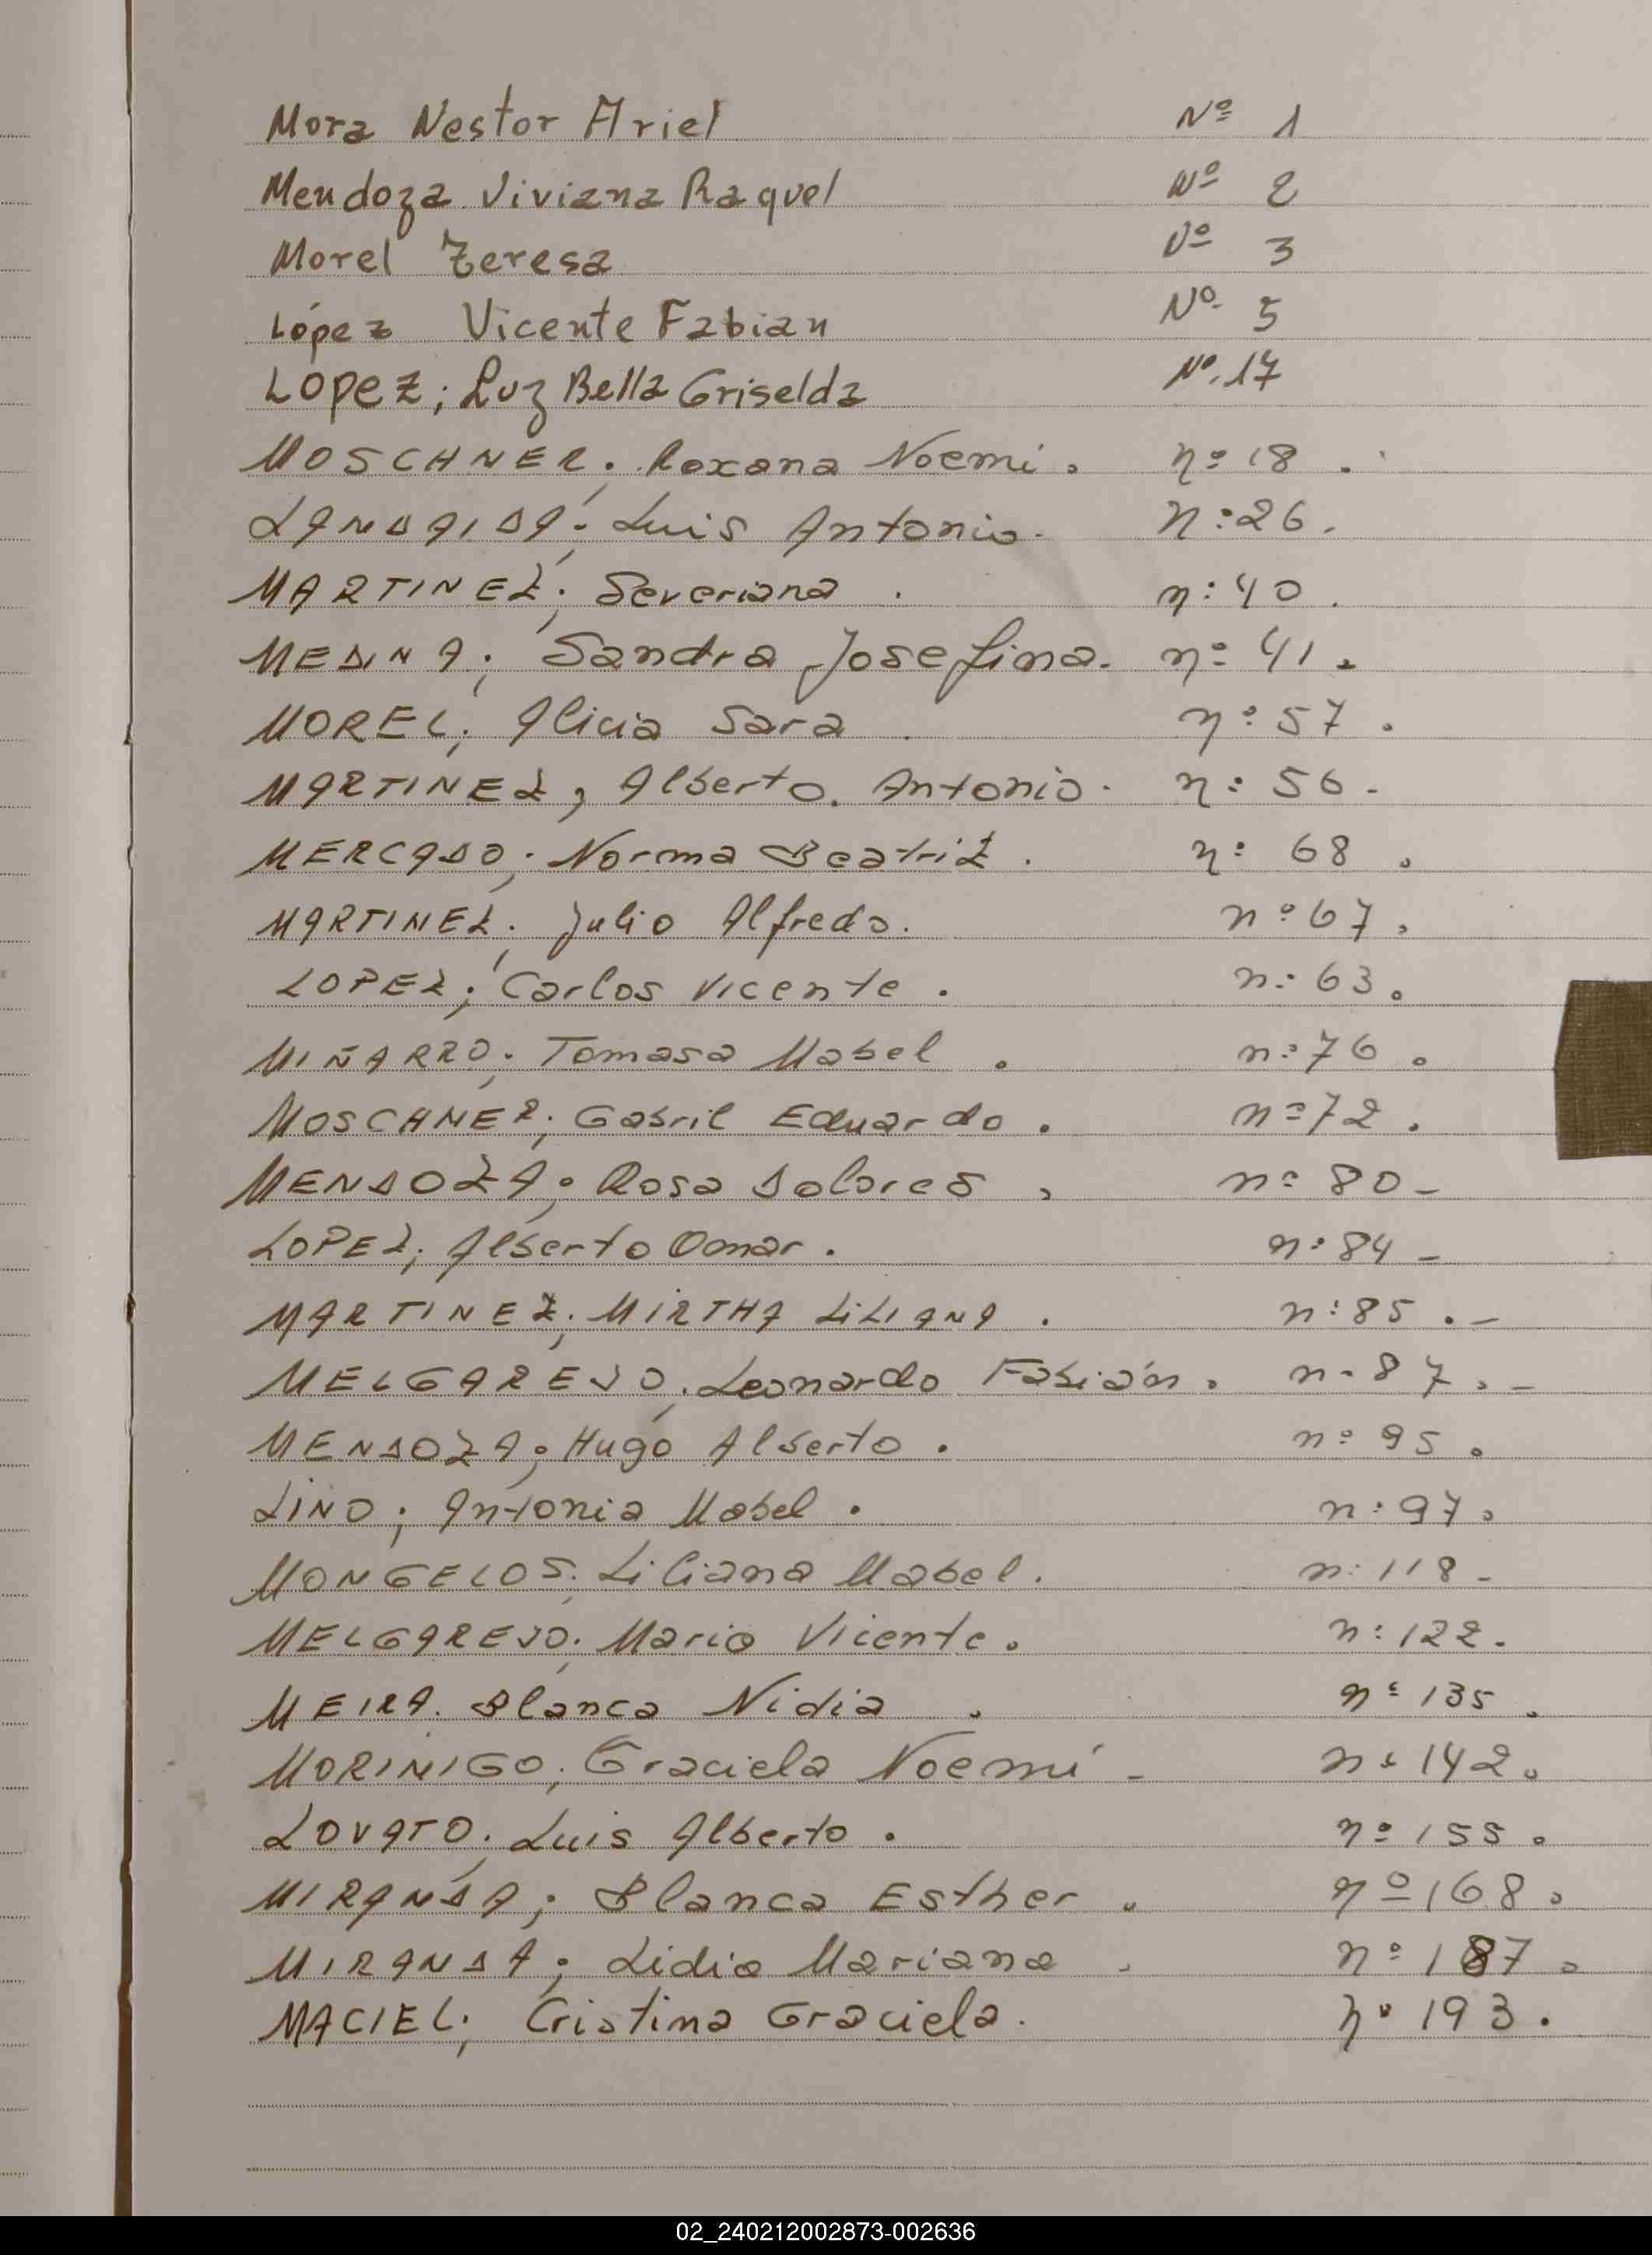 Mora Nestor Ariel Nº 1
Mendoza Viviana Raquel Nº 2
Morel Teresa Nº 3
López Vicente Fabian Nº 5
Lopez; Luz Bella Griselda Nº 17
MOSCHNER; Roxana Noemi. nº 18.
LANDAIDA; Luis Antonio. nº 26.
MARTINEZ; Severiana. nº 40.
MEDINA; Sandra Josefina. nº 41.
MOREL; Alicia Sara. nº 57.
MARTINEZ, Alberto Antonio. nº 56.
MERCADO; Norma Beatriz. nº 68.
MARTINEZ; Julio Alfredo. nº 67.
LOPEZ; Carlos Vicente. nº 63.
MIÑARRO; Tomasa Mabel. nº 76.
MOSCHNER; Gabril Eduardo. nº 72.
MENDOZA; Rosa Dolores. nº 80-
LOPEZ; Alberto Omar. nº 84-
MARTINEZ; MIRTHA LILIANA. nº 85.-
MELGAREJO; Leonardo Fabián. nº 87.-
MENDOZA; Hugo Alberto. nº 95.
LINO; Antonia Mabel. nº 97.
MONGELOS; Liliana Mabel. nº 118-
MELGAREJO; Mario Vicente. nº 122.
MEIRA. Blanca Nidia. nº 135.
MORINIGO; Graciela Noemí- nº 142.
LOVATO; Luis Alberto. nº 155.
MIRANDA; Blanca Esther. nº 168.
MIRANDA; Lidia Mariana. nº 187.
MACIEL; Cristina Graciela. nº 193.
02_240212002873-002636